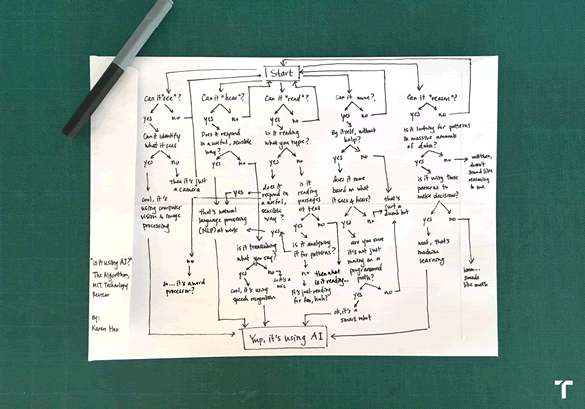 Start
Can it "see"?
yes
no
Can it identify
what it sees
yes
no
then it's just
a camera
cool, it's
using computer
vision & image
processing
Can it "hear"?
yes
no
Does it respond
in a useful, sensible
way?
yes
no
yes
that's natural
language processing
(NLP) at work
no
so... it's a word
processor?
is it transcribing
what you say?
yes
no
so it's a
mic
cool, it's using
speech recognition
Can it "read"?
yes
no
Is it reading
what you type?
yes
no
does it
respond in
a useful,
sensible
way?
is it
reading
passages
of text
yes
no
is it analyzing
it for patterns?
yes
no
it's just reading
for fun, huh?
then what
is it reading...
Can it move?
yes
no
By itself, without
help?
yes
no
does it move
based on what
it sees & hears?
yes
no
that's
just a
dumb bot
are you sure
it's not just
moving on a
programmed
path?
yes
no
ok, it's a
smart robot
Can it "reason"?
yes
no
is it looking for patterns
in massive amounts
of data?
yes
no
well then,
doesn't
sound like
reasoning
to me
is it using those
patterns to
make decisions?
yes
no
neat, that's
machine
learning
hmm...
sounds
like math
Yup, it's using AI
"Is it using AI?"
The Algorithm,
MIT Technology
Review
By:
Karen Hao